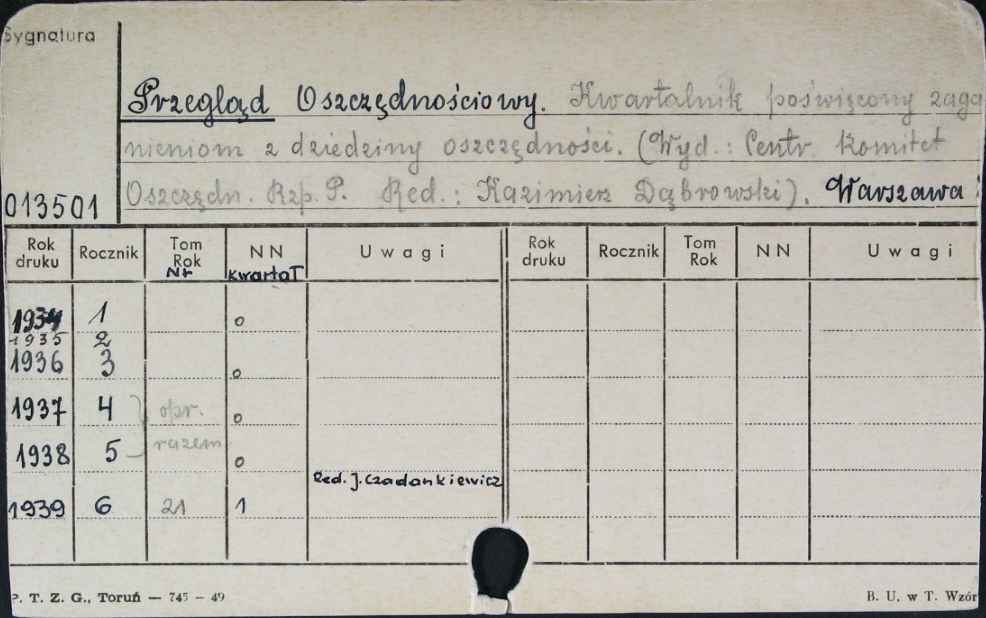 Sygnatura
Przegląd Oszczędnościowy. Kwartalnik poświęcony zaga
nieniom z dziedziny oszczędności. (Wyd.: Centr. Komitet
013501 Oszczędn. Rzp. P. Red.: Kazimierz Dąbrowski). Warszawa :
Rok druku Rocznik Tom Rok Nr NN kwartał Uwagi Rok druku Rocznik Tom Rok NN Uwagi
1934 1 o
1935 2
1936 3 o
1937 4 opr. o
1938 5 razem o
Red. J. Czadankiewicz
1939 6 21 1
P. T. Z. G., Toruń — 745 – 49 B. U. w T. Wzór